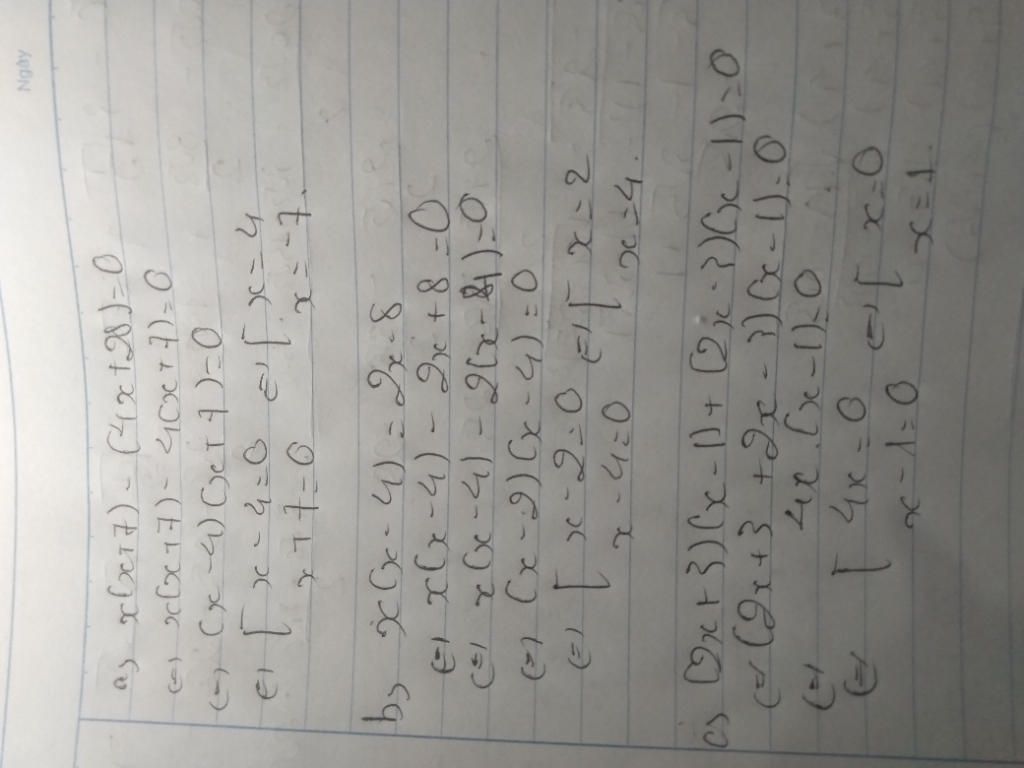 Ngày
a, x(x+7) - (4x+28)=0
(=) x(x+7) - 4(x+7)=0
(=) (x-4)(x+7)=0
(=) [ x-4=0 (=) [ x=4
x+7=0 x=-7.
b, x(x-4)=2x-8
(=) x(x-4) - 2x+8=0
(=) x(x-4) - 2(x-4)=0
(=) (x-2)(x-4)=0
(=) [ x-2=0 (=) [ x=2
x-4=0 x=4.
c, (2x+3)(x-1)+(2x-3)(x-1)=0
(=) (2x+3+2x-3)(x-1)=0
(=) 4x(x-1)=0
(=) [ 4x=0 (=) [ x=0
x-1=0 x=1